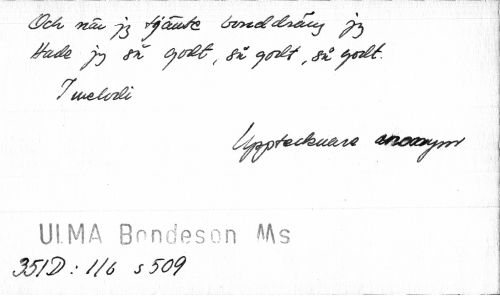 Och när jg tjänte bonddräng jg
Hade jg så godt, så godt, så godt.
1 melodi
Upptecknare anonym
ULMA Bondeson Ms
351D: 116 s 509